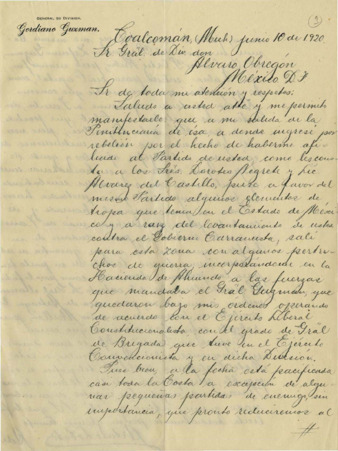 General de Division.
Gordiano Guzman.
Coalcomán, (Mich) junio 10 de 1920
Sr Grál de Div. don
Alvaro Obregón
México D.F
Sr de toda mi atención y respetos:
Saludo a usted atté y me permito
manifestarle que a mi salida de la
Penitenciaria de esa, a donde ingresé por
rebelión por el hecho de haberme afi-
liado al Partido de usted, como les consta
a los Srés Dorotéo Negrete y Lic
Alvarez del Castillo, puse a favor del
mismo Partido algunos elementos de
tropa que tenia en el Estado de Méxi-
co y a raiz del levantamiento de usted
contra el Gobierno Carrancista, salí
para esta zona con algunos pertre-
chos de guerra incorporandome en la
Hacienda de a las fuerzas
que mandaba el Grál Guzmán y que
quedaron bajo mis ordenes operando
de acuerdo con el Ejército Liberal
Constitucionalista con el grado de Grál
de Brigada que tuve en el Ejército
Convencionista y en dicha Division.
Pues bien, a la fecha está pacificada
casi toda la Costa a excepcion de algu-
nas pequeñas partidas de enemigo sin
importancia, que pronto reduciremos al
#